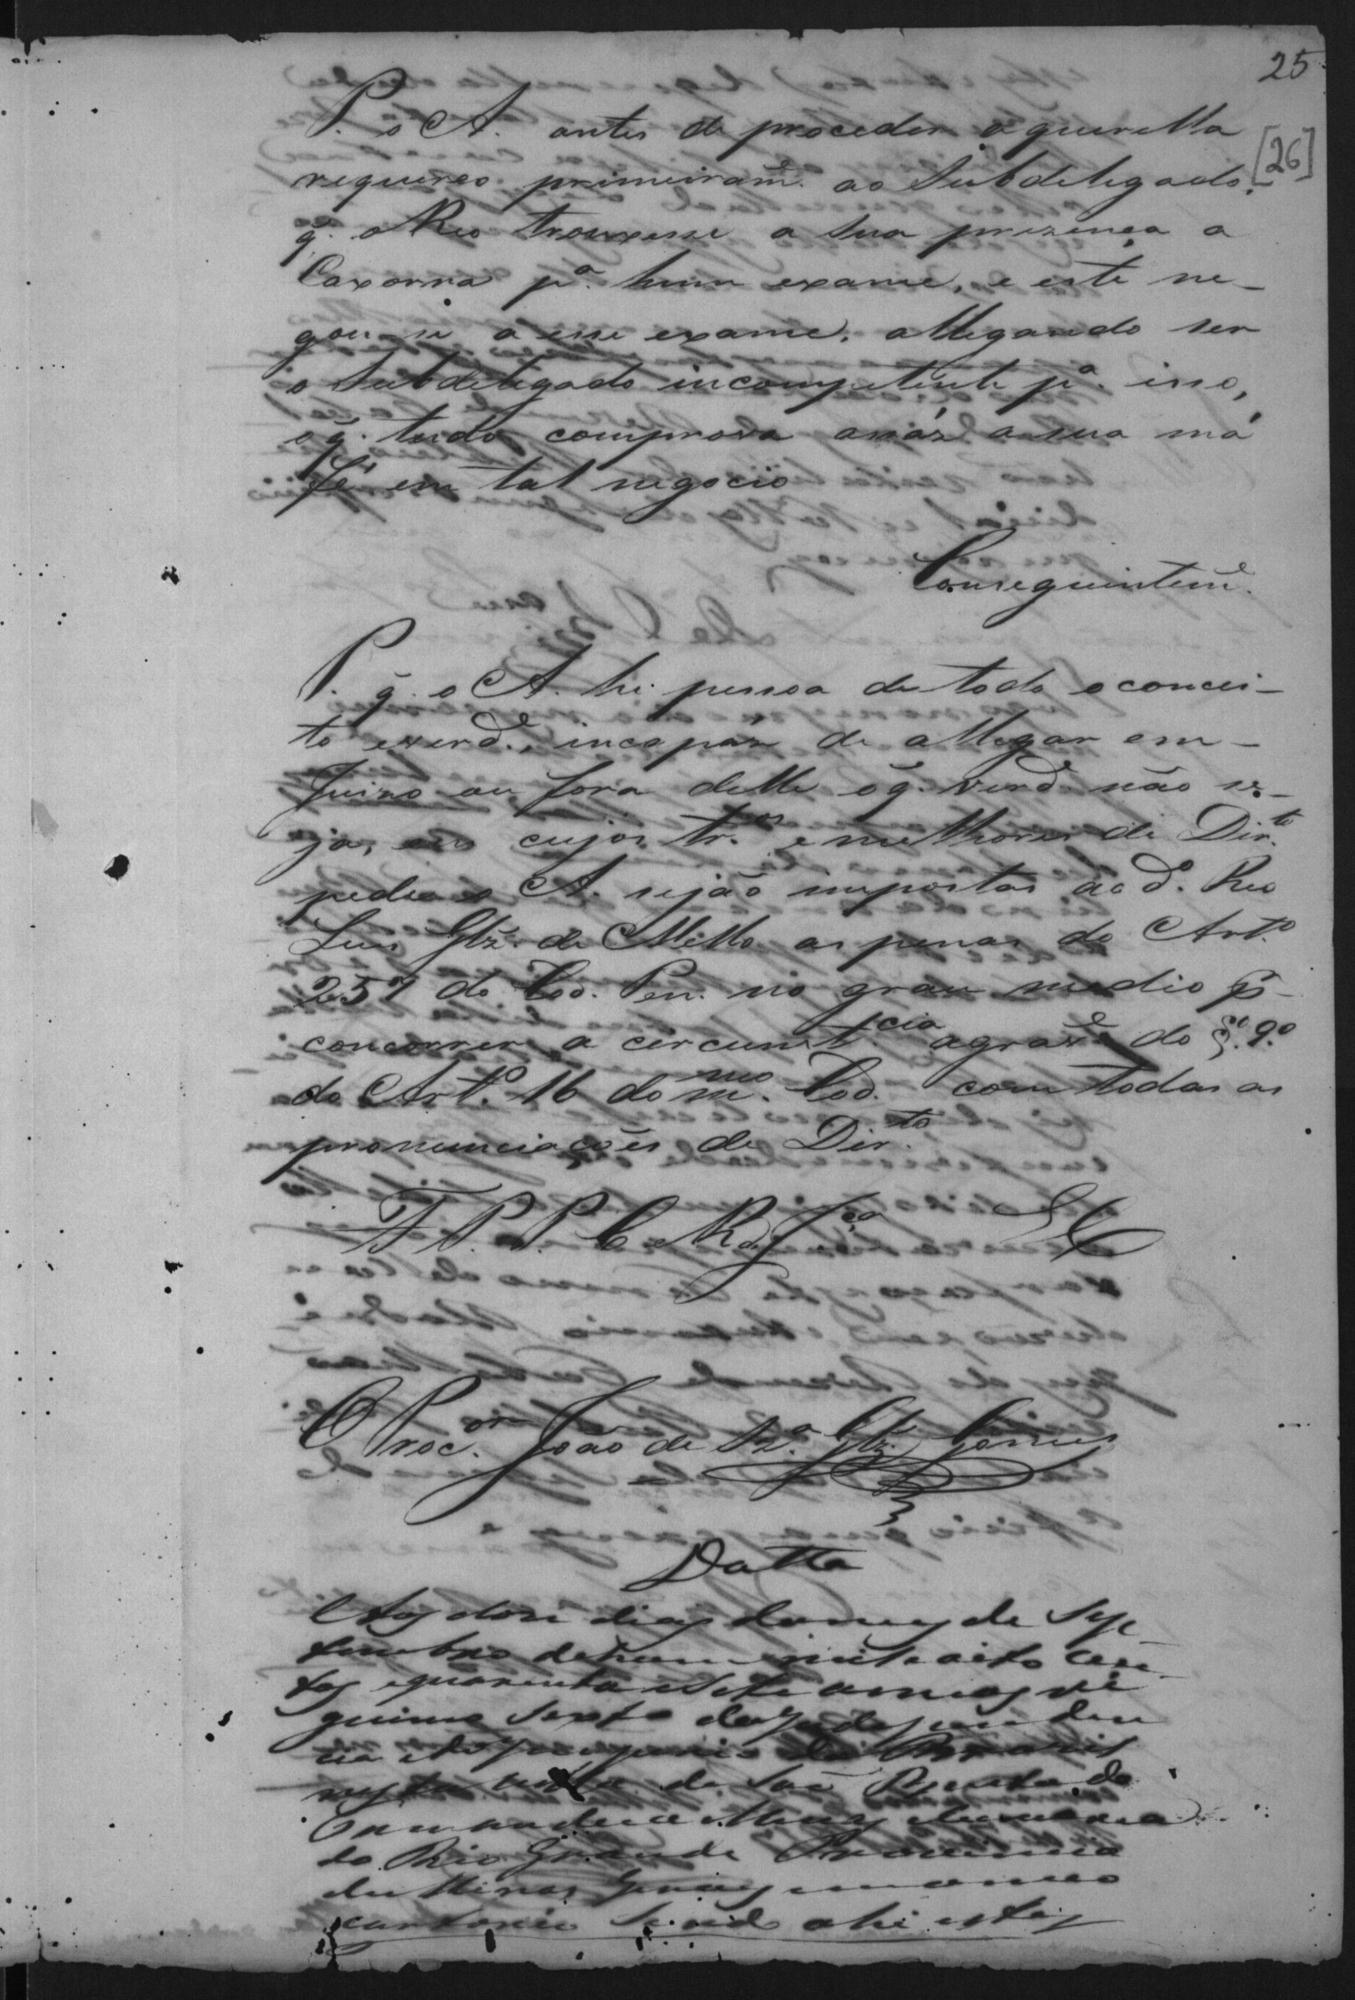 25
[26]
P. o A. antes de proceder a querella
requereo primeiram.e ao Subdelegado,
q̃. o Reo trouxesse a sua prezença a
Caxorra p.a hum exame, e este ne-
gou-se a esse exame, allegando ser
o Subdelegado incompetente p.a isso,
o q̃. tudo comprova assáz a sua má
fé em tal negocio
Conseguintem.e
P. q̃. o A. he pessoa de todo o concei-
to e verd.e, incapáz de allegar em
Juizo ou fora delle o q̃. verd.e não se-
ja, em cujos tr.os e melhores de Dir.to
pede o A. sejão impostas ao d.o Reo
Luis Glz̃. de Mello as penas do Art.o
257 do Cod. Pen. no grau medio p̃
concorrer a circunst.cia agrav.e do §.o 9.o
do Art.o 16 do m.mo Cod. com todas as
pronunciações de Dir.to
F. P. P. C. e R. de J.ça
O Proc.or João de Sz.a Glz̃. Gomes
Datta
Aos doze dias do mes de Sep
tembro de hum mil e oito cen-
tos e quarenta e Sete annos vi
guimo Sexto da Independen
cia e do Imperio do Brazil
nesta villa de São Bento do
Tamandua Minas e Comarca
do Rio Grande Provincia
de Minas Geraes em o meo
cartorio Sendo ahi estas